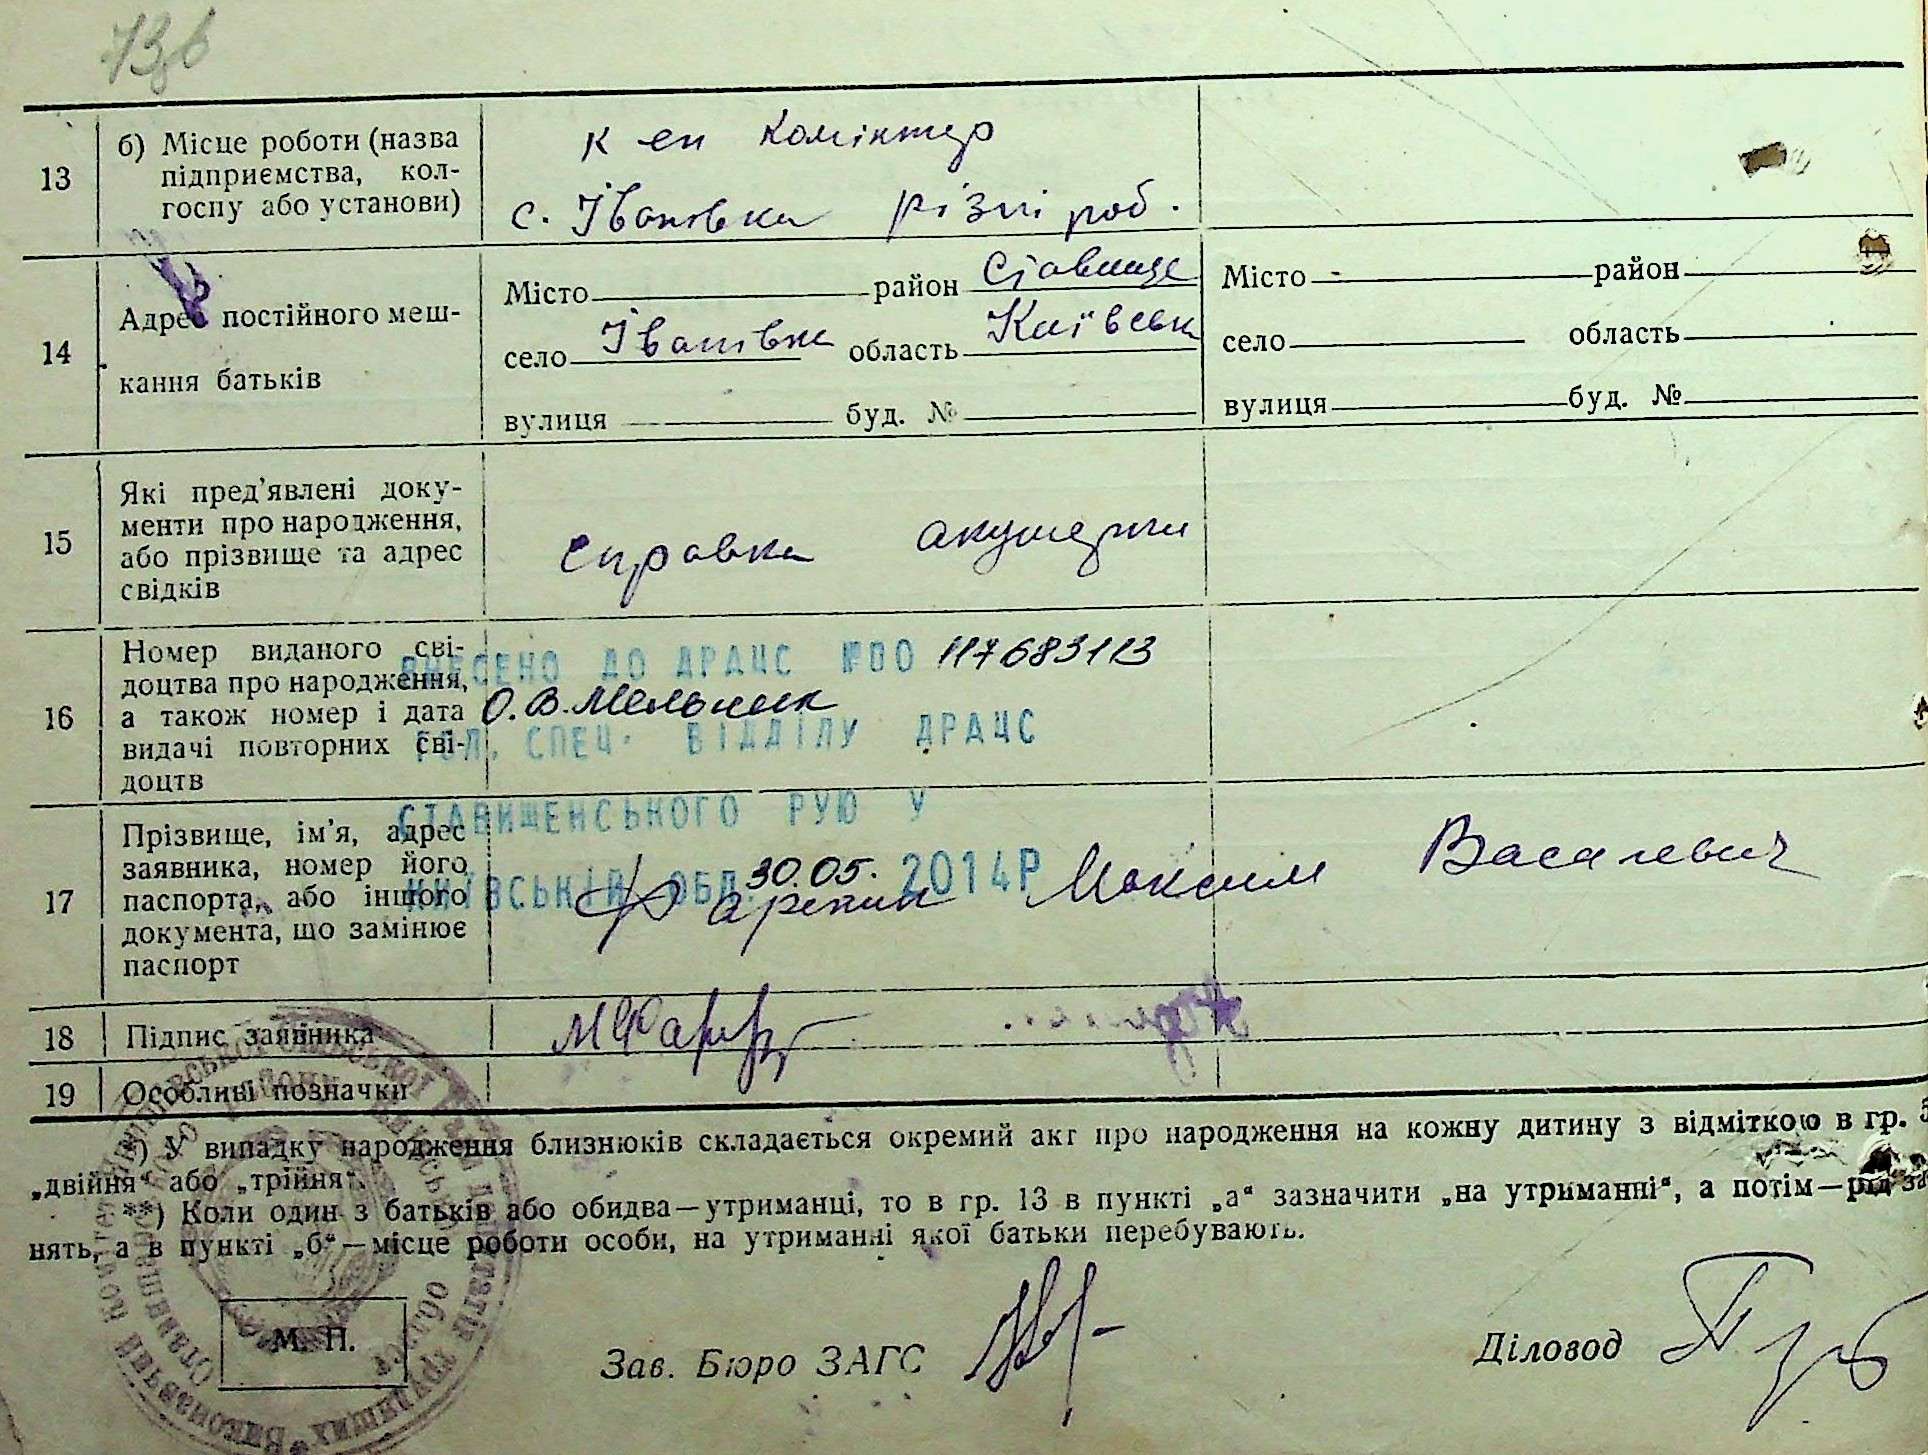 73в
13
б) Місце роботи (назва
підприємства, кол-
госпу або установи)
к ен Комінтер
с. Іванівка різні роб.
14
Адрес постійного меш-
кання батьків
Місто район Ставище
село Іванівка область Київськ
вулиця буд. №
Місто - район
село область
вулиця буд. №
15
Які пред'явлені доку-
менти про народження,
або прізвище та адрес
свідків
справка акушерки
16
Номер виданого сві-
доцтва про народження,
а також номер і дата
видачі повторних сві-
доцтв
ВНЕСЕНО ДО ДРАЦС №00 117683113
О.В.Мельник
ГОЛ. СПЕЦ. ВІДДІЛУ ДРАЦС
СТАВИЩЕНСЬКОГО РУЮ У
КИЇВСЬКІЙ ОБЛ. 30.05. 2014Р
17
Прізвище, ім'я, адрес
заявника, номер його
паспорта, або іншого
документа, що замінює
паспорт
Максим Василевич
18
Підпис заявника
19
Особливі позначки
*) У випадку народження близнюків складається окремий акт про народження на кожну дитину з відміткою в гр. 5
„двійня“ або „трійня“.
**) Коли один з батьків або обидва—утриманці, то в гр. 13 в пункті „а“ зазначити „на утриманні“, а потім—рід за
нять, а в пункті „б“—місце роботи особи, на утриманні якої батьки перебувають.
М. П.
Зав. Бюро ЗАГС
Діловод